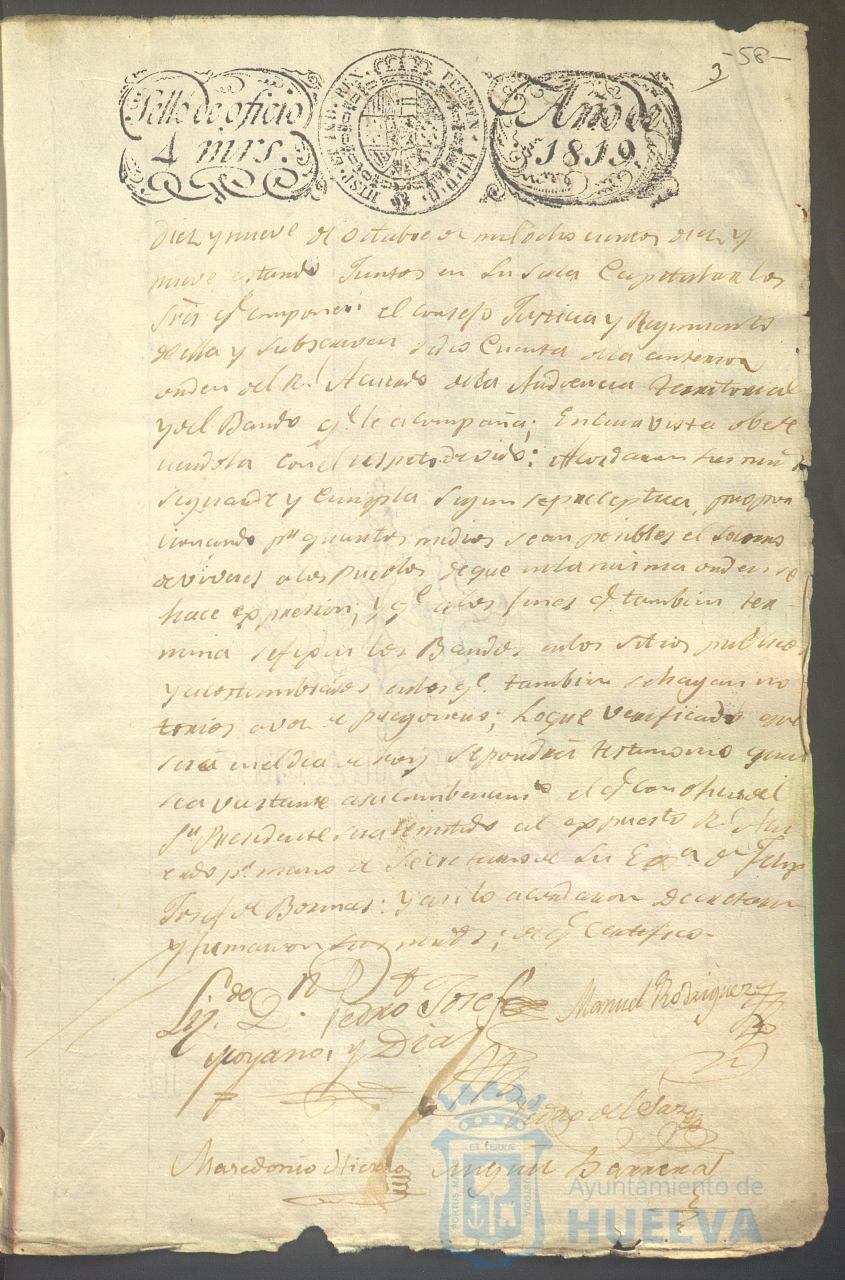 3 -58-
Sello de oficio
4 mrs.
HISP. ET IND. REX. FERDIN. VII. D. G.
Año de
1819.
Diez y nueve de octubre de mil ocho cientos diez y
nueve estando Juntos en su Sala Capitular los
Srês qe componen el Consejo Justicia y Regimiento
de ella y subscriven se dio Cuenta de la anterior
orden del Rl Acuerdo de la Audiencia territorial
y del Bando qe le acompaña; En cuia vista obede
ciendola con el respeto devido: Acordaron sus mrds
se guarde y Cumpla segun se preceptua, propor
cionando pr quantos medios sean posibles el socorro
de viveres a los Pueblos de que en la misma orden se
hace expresion; y qe a los fines qe tambien ter-
mina se fixen los Bandos en los sitios publicos
y acostumbrados en los qe tambien se hagan no
torios a voz de pregonero; lo que verificado que
sea en el dia de hoy se pondrá testimonio que
sea vastante el qe con oficio del
Sr Presidente sea remitido al expuesto Rl Acu
erdo pr mano de Secretario de Su Exa Dn Felip
Josef de Bormas: Y asi lo acordaron decretaron
y firmaron sus mrds; de qe Certifico.-
Liz.do Dn Pedro Josef Manuel Rodriguez
Moyano, y Diaz
del Saz
Masedonio Miguel Barrera
ET TERRAE
PORTUS MARIS
CUSTODIA
Ayuntamiento de
HUELVA